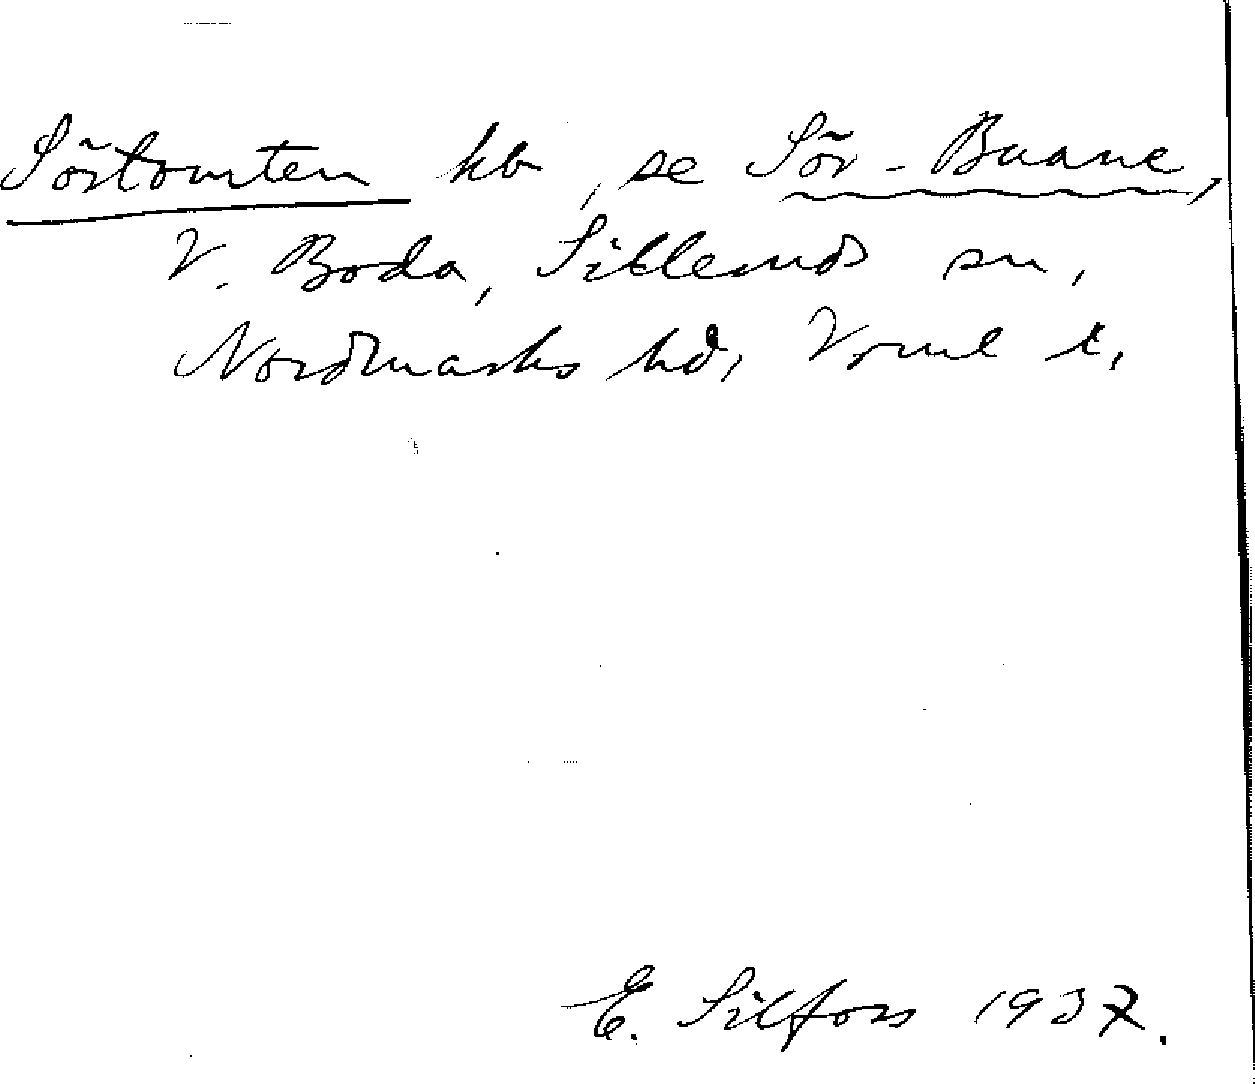 Sörtomten hb, se Sör-Buane,
V. Boda, Silleruds sn,
Nordmarks hd, Vrml l,
E. Silfors 1937.